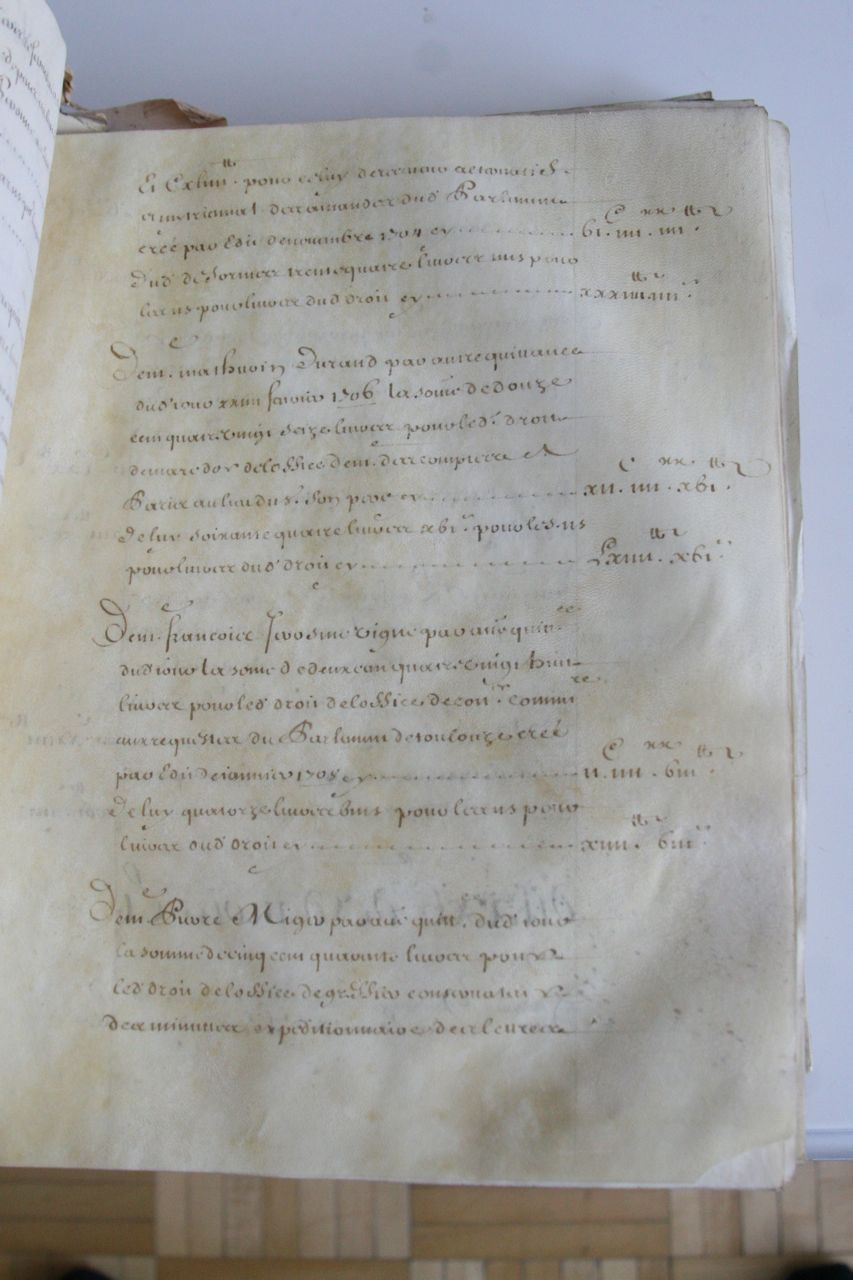 Et Cxliiii tt. pour celuy de receveur
et du Parlement
créé par Edit de novembre 1704 cy ........ bi C. iiii xx. iiii tt
Dud. De Sormar trente quatre livres iiii s pour
les iii s pour livre dud droit cy ........ xxxiiii tt iiii s
De m.e mathurin Durand par autre quittance
dud jour xxiiii fevrier 1706 la some de douze
cent quatre vingt seize livres pour led. droit
de marc d'or de l'office de m.e des comptes a
Paris au lieu du s.r son pere cy ........ xii C. iiii xx. xbi tt
De luy soixante quatre livres xbi s pour les iii s
pour livre dud droit cy ........ Lxiiii tt. xbi s
De m.e francois par autre quitt.ce
dud jour la some de deux cens quatre vingt huit
livres pour led droit de l'office de con.er commis.re
aux requestes du Parlement de toulouze créé
par Edit de janvier 1705 cy ........ ii C. iiii xx. biii tt
De luy quatorze livres biii s pour les iii s pour
livre dud droit cy ........ xiiii tt. biii s
De m.e Pierre Niger par autre quitt. dud jour
la somme de cinq cent quarante livres pour
led droit de l'office de greffier conservateur
des minuttes, expeditionnaire des lettres